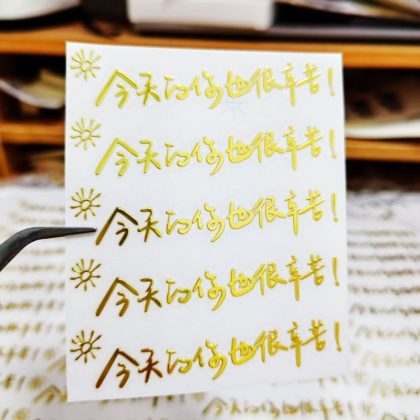 今天的你也很辛苦!
今天的你也很辛苦!
今天的你也很辛苦!
今天的你也很辛苦!
今天的你也很辛苦!